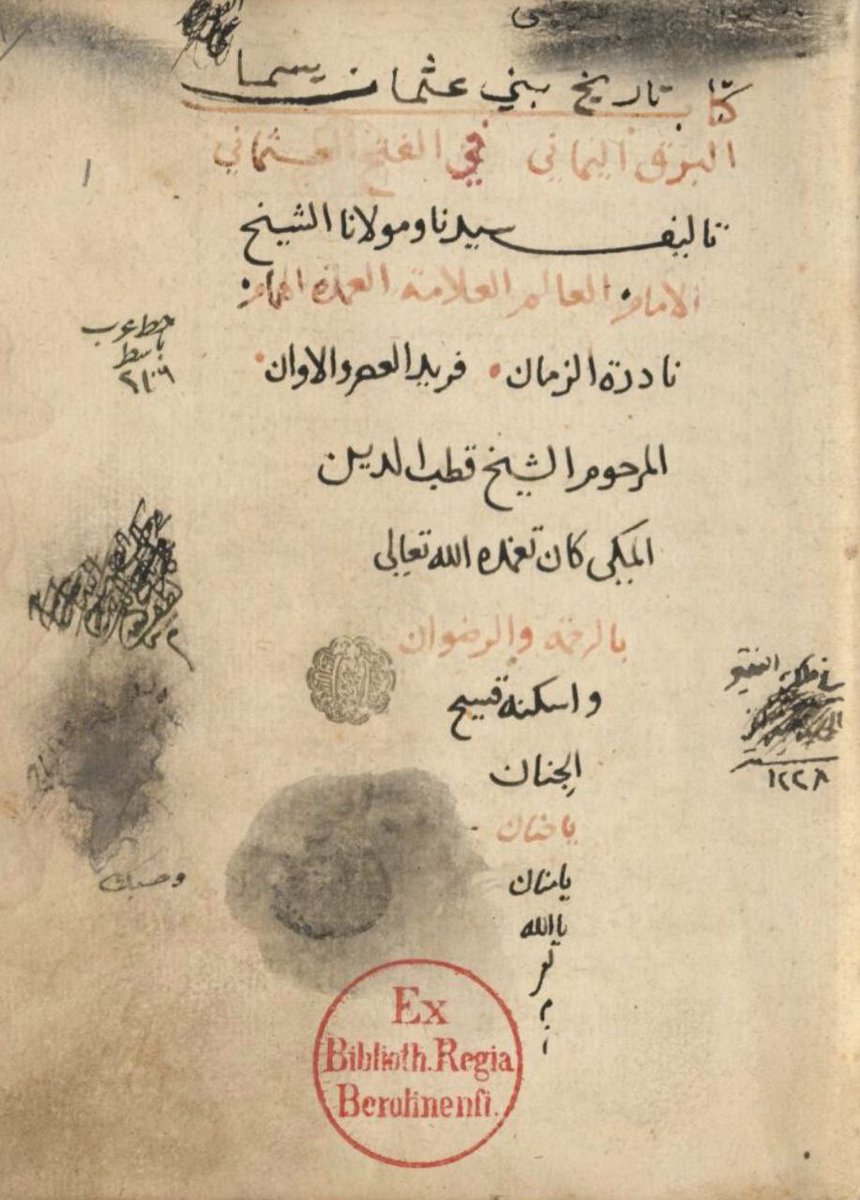 كتاب تاريخ بني عثمان يسما
البرق اليماني في الفتح العثماني
تاليف سيدنا ومولانا الشيخ
الامام العالم العلامة العمدة الهمام
نادرة الزمان فريد العصر والاوان
المرحوم الشيخ قطب الدين
المكي كان تغمده الله تعالى
بالرحمة والرضوان
واسكنه فسيح
الجنان
ياحنان
يامنان
يا الله
١٢٢٨
Ex
Biblioth. Regia
Berolinensi.